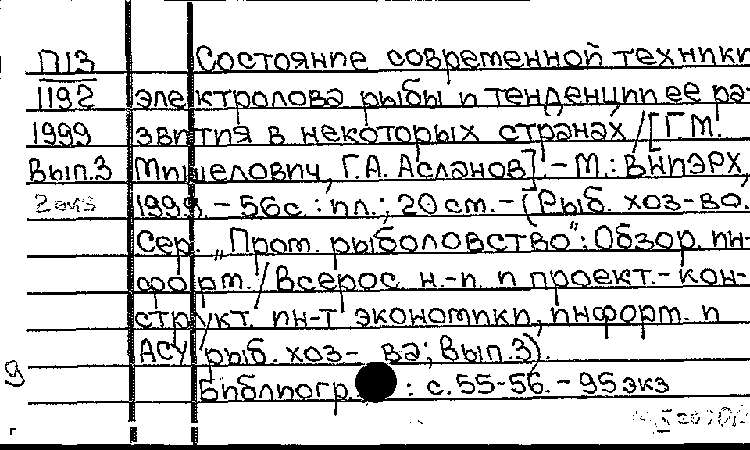 П13 Состояние современной техники
1192 электролова рыбы и тенденции ее ра-
1999 звития в некоторых странах / [Г.М.
Вып.3 Мишелович, Г.А. Асланов]. - М.: ВНИЭРХ,
2 экз 1999. - 56с. : ил.; 20 см. - (Рыб. хоз-во.
Сер. „Пром. рыболовство": Обзор. ин-
форм. / Всерос. н.-и. и проект.-кон-
структ. ин-т экономики, информ. и
АСУ рыб. хоз- ва; Вып.3).
9 Библиогр. : с.55-56. - 95 экз